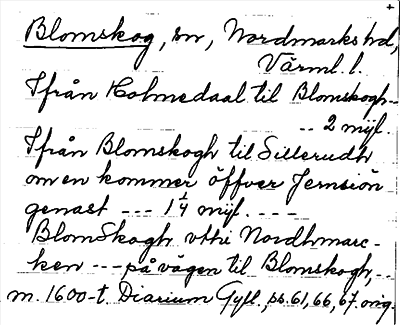 Blomskog, sn, Nordmarks hd,
Värml. l.
Ifrån Holmedaal til Blomskogh--
-- 2 mijl.
Ifrån Blomskogh til Sillerudh
om en kommer öffver Jernsiön
genast --- 1 1/4 mijl. ---
BlomSkogh vthi Nordhmarc-
ken --- på vägen til Blomskogh, --
m. 1600-t. Diarium Gyll., ps. 61, 66, 67. orig.